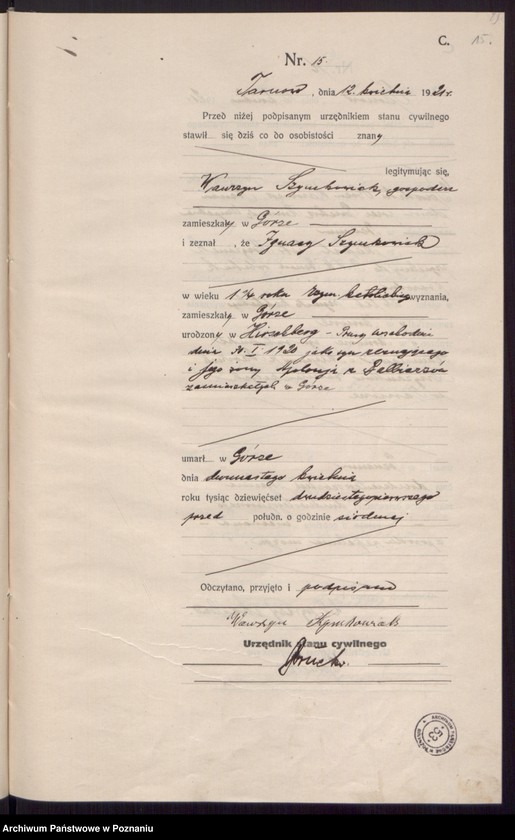 C.
15.
Nr. 15.
Tarnowo, dnia 12 kwietnia 1921 r.
Przed niżej podpisanym urzędnikiem stanu cywilnego
stawił się dziś co do osobistości znany
legitymując się,
Wawrzyn Szymkowiak, gospodarz
zamieszkały w Górze
i zeznał, że Ignacy Szymkowiak
w wieku 1 1/4 roku rzym. katolickiego wyznania,
zamieszkały w Górze
urodzony w Hirschberg - Prusy
dnia 30.I 1920 jako syn zeznającego
i jego żony Apolonji z
zamieszkałych w Górze
umarł w Górze
dnia dwunastego kwietnia
roku tysiąc dziewięćset dwudziestegopierwszego
przed połudn. o godzinie siódmej
Odczytano, przyjęto i podpisano
Wawrzyn Szymkowiak
Urzędnik stanu cywilnego
Archiwum Państwowe w Poznaniu